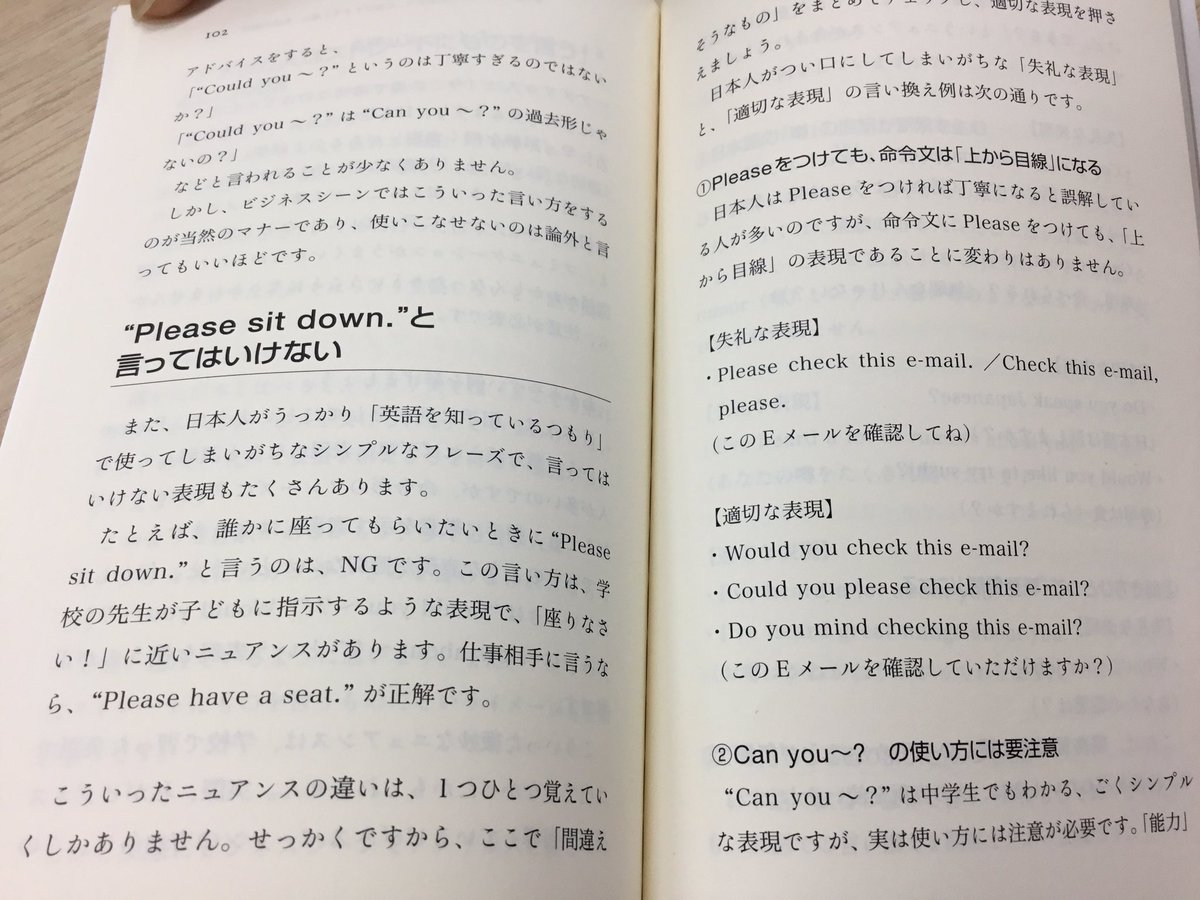 102
アドバイスをすると、
「“Could you ～？” というのは丁寧すぎるのではない
か？」
「“Could you ～？” は “Can you ～？” の過去形じゃ
ないの？」
などと言われることが少なくありません。
しかし、ビジネスシーンではこういった言い方をする
のが当然のマナーであり、使いこなせないのは論外と言
ってもいいほどです。
“Please sit down.”と
言ってはいけない
また、日本人がうっかり「英語を知っているつもり」
で使ってしまいがちなシンプルなフレーズで、言っては
いけない表現もたくさんあります。
たとえば、誰かに座ってもらいたいときに “Please
sit down.” と言うのは、NG です。この言い方は、学
校の先生が子どもに指示するような表現で、「座りなさ
い！」に近いニュアンスがあります。仕事相手に言うな
ら、“Please have a seat.” が正解です。
こういったニュアンスの違いは、1つひとつ覚えてい
くしかありません。せっかくですから、ここで「間違え
そうなもの」をまとめてチェックし、適切な表現を押さ
えましょう。
日本人がつい口にしてしまいがちな「失礼な表現」
と、「適切な表現」の言い換え例は次の通りです。
①Pleaseをつけても、命令文は「上から目線」になる
日本人は Please をつければ丁寧になると誤解してい
る人が多いのですが、命令文に Please をつけても、「上
から目線」の表現であることに変わりはありません。
【失礼な表現】
・Please check this e-mail. ／Check this e-mail,
please.
(このＥメールを確認してね)
【適切な表現】
・Would you check this e-mail?
・Could you please check this e-mail?
・Do you mind checking this e-mail?
(このＥメールを確認していただけますか？)
②Can you～？ の使い方には要注意
“Can you ～？” は中学生でもわかる、ごくシンプル
な表現ですが、実は使い方には注意が必要です。「能力」